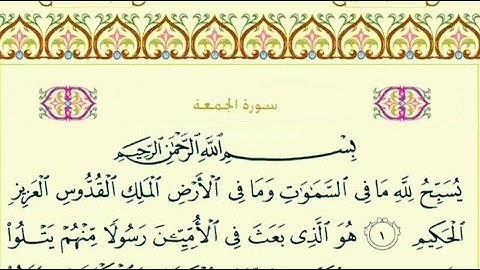 سورة الجمعة
بِسْمِ اللَّهِ الرَّحْمَٰنِ الرَّحِيمِ
يُسَبِّحُ لِلَّهِ مَا فِي السَّمَٰوَٰتِ وَمَا فِي الْأَرْضِ الْمَلِكِ الْقُدُّوسِ الْعَزِيزِ
الْحَكِيمِ ١ هُوَ الَّذِي بَعَثَ فِي الْأُمِّيِّـۧنَ رَسُولًا مِّنْهُمْ يَتْلُوا۟